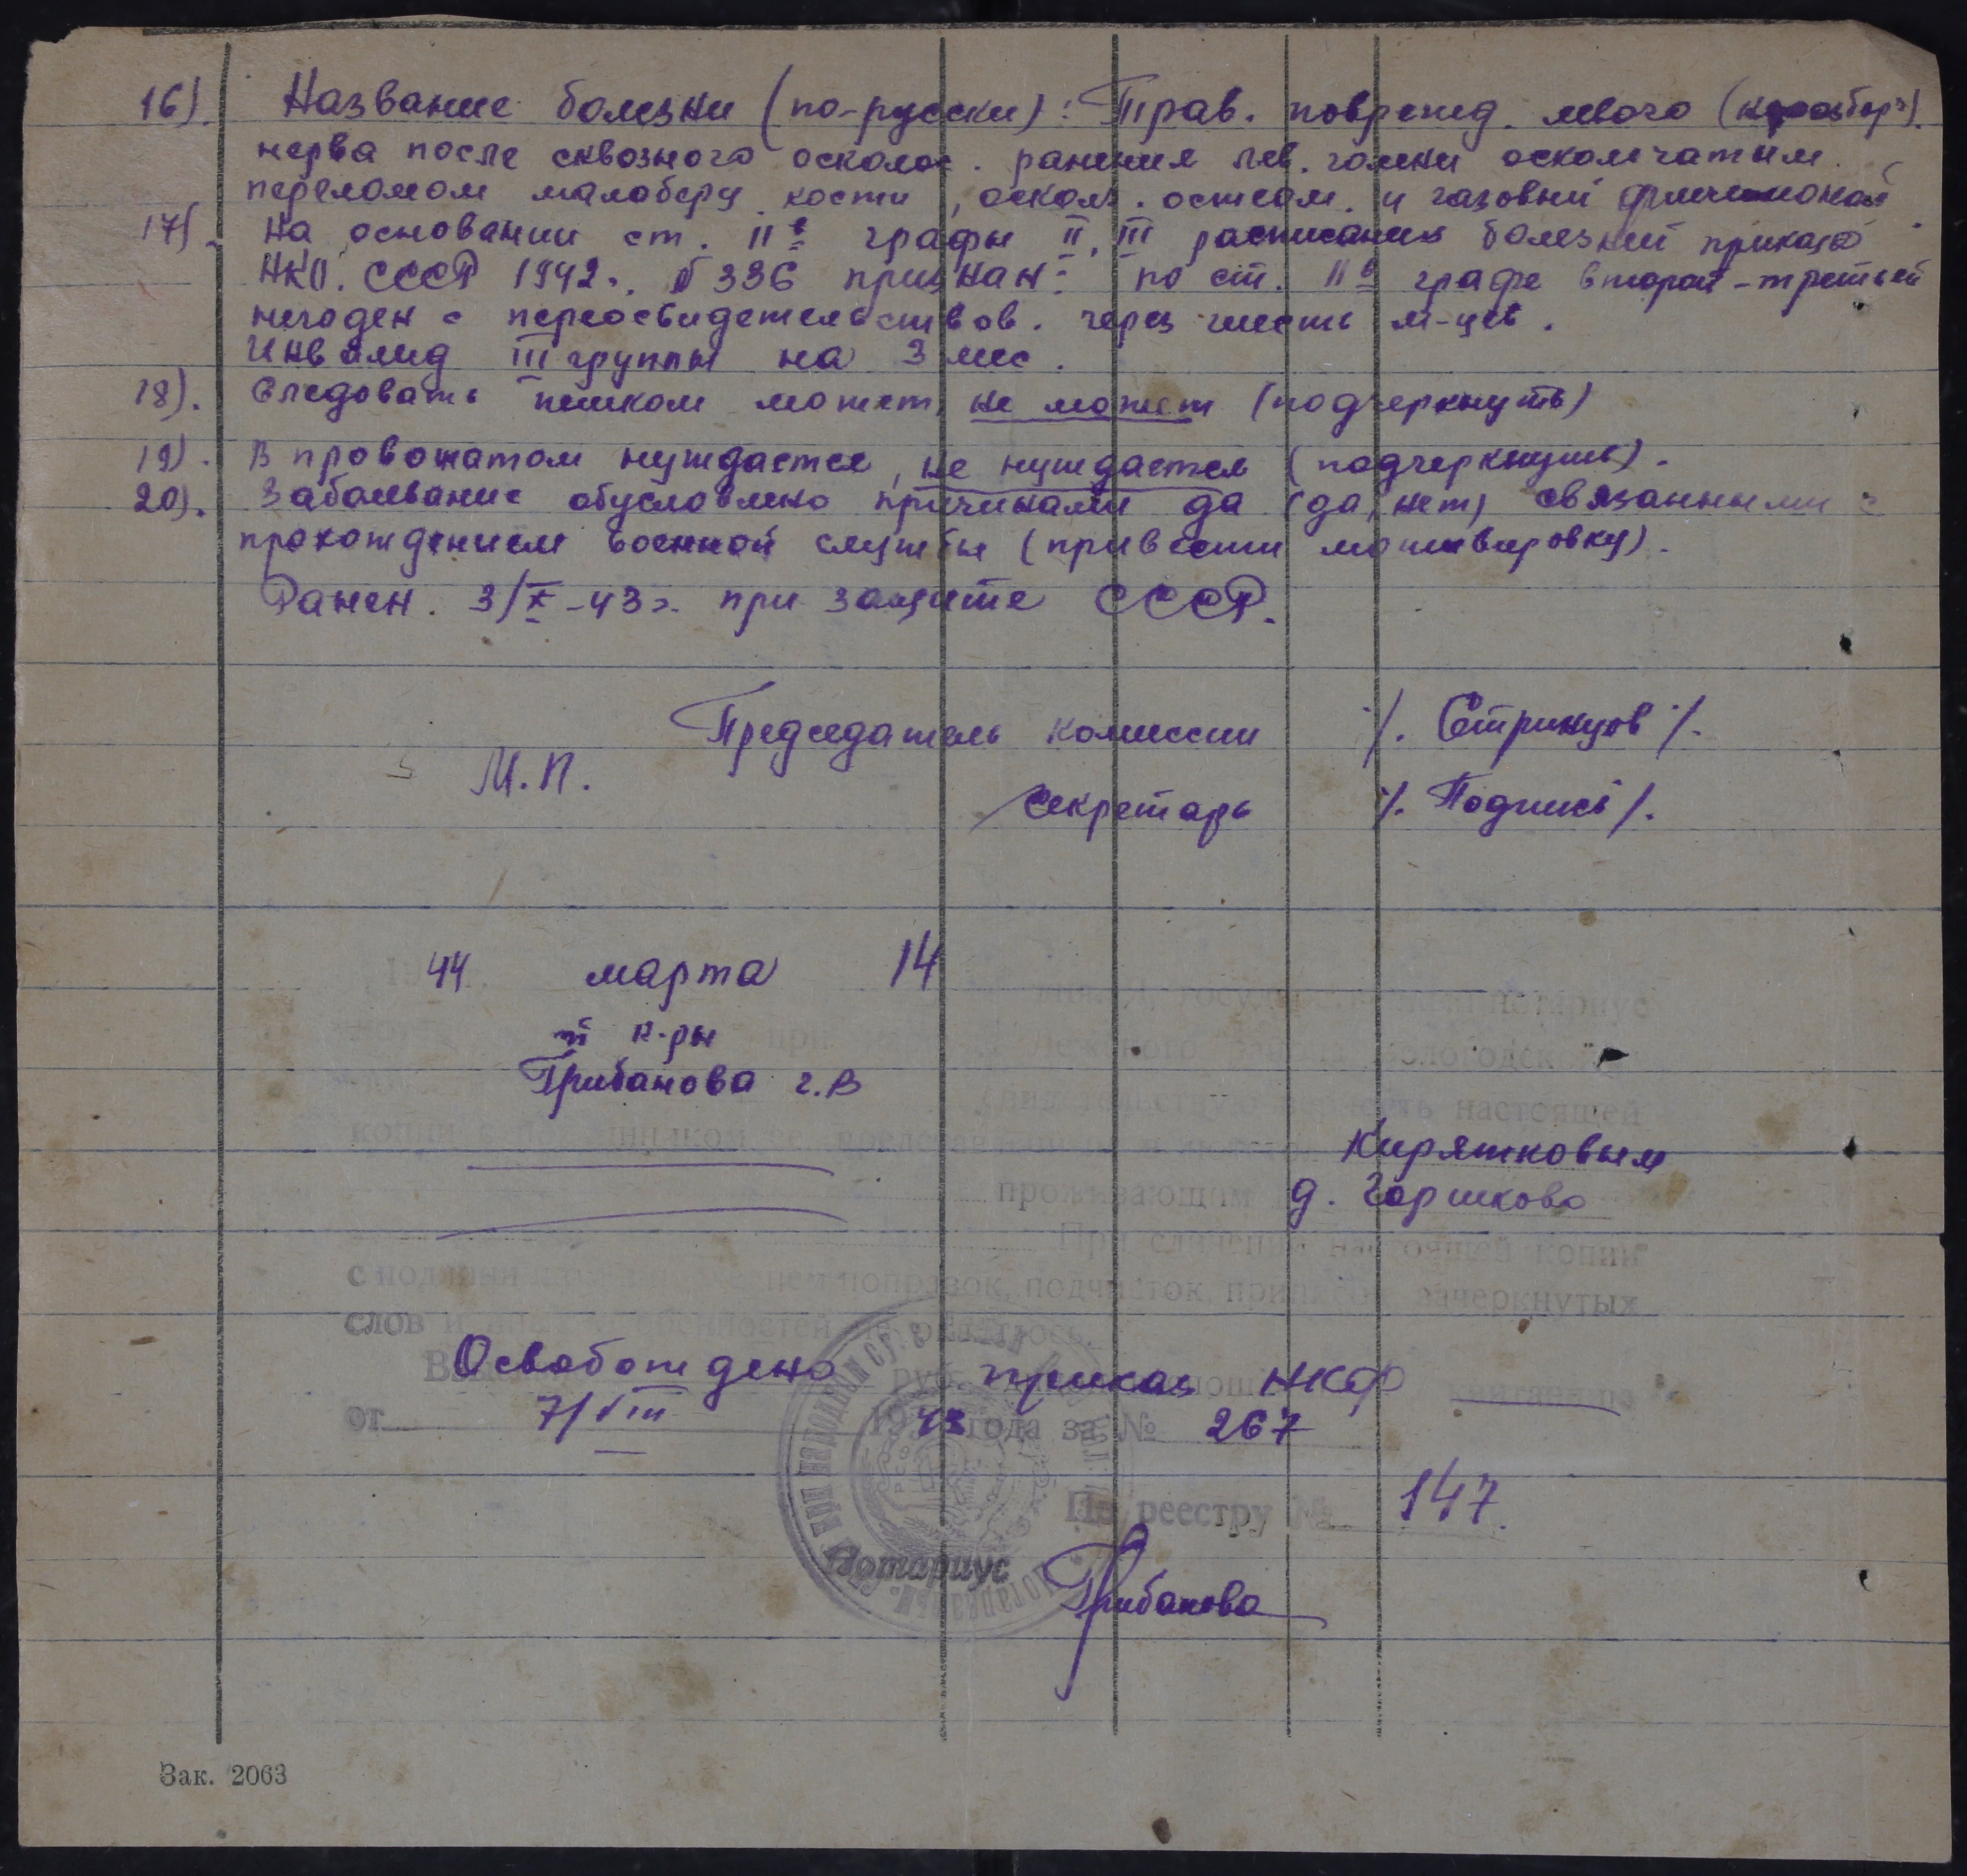 16). Название болезни (по-русски): Трав. поврежд. левого
нерва после сквозного осколоч. ранения лев. голени оскольчатым
переломом малоберц. кости, оскол. остеом. и газовый флегмоной
17). На основании ст. 11в графы II, III расписания болезней приказа
НКО. СССР 1942г. № 336 признан: по ст. 11в графе второй-третьей
негоден с переосвидетельствов. через шесть м-цев.
Инвалид III группы на 3 мес.
18). Следовать пешком может, не может (подчеркнуть)
19). В провожатом нуждается, не нуждается (подчеркнуть).
20). Заболевание обусловлено причинами да (да, нет) связанными с
прохождением военной службы (привести мотивировку).
Ранен. 3/X-43г. при защите СССР.
Председатель комиссии /. Стринцов /.
М.П.
Секретарь /. Подпись /.
44 марта 14
нотариус
й к-ры при
Грибанова Г.В настоящей
копии с
Киряшковым
проживающим д. Горшково
При сличении настоящей копии
с подлинником поправок, подчисток, приписок, зачеркнутых
слов и
Освобождено руб. приказ НКФ
от 7/VIII 1943 года за № 267
По реестру № 147.
Нотариус Грибанова
Зак. 2063